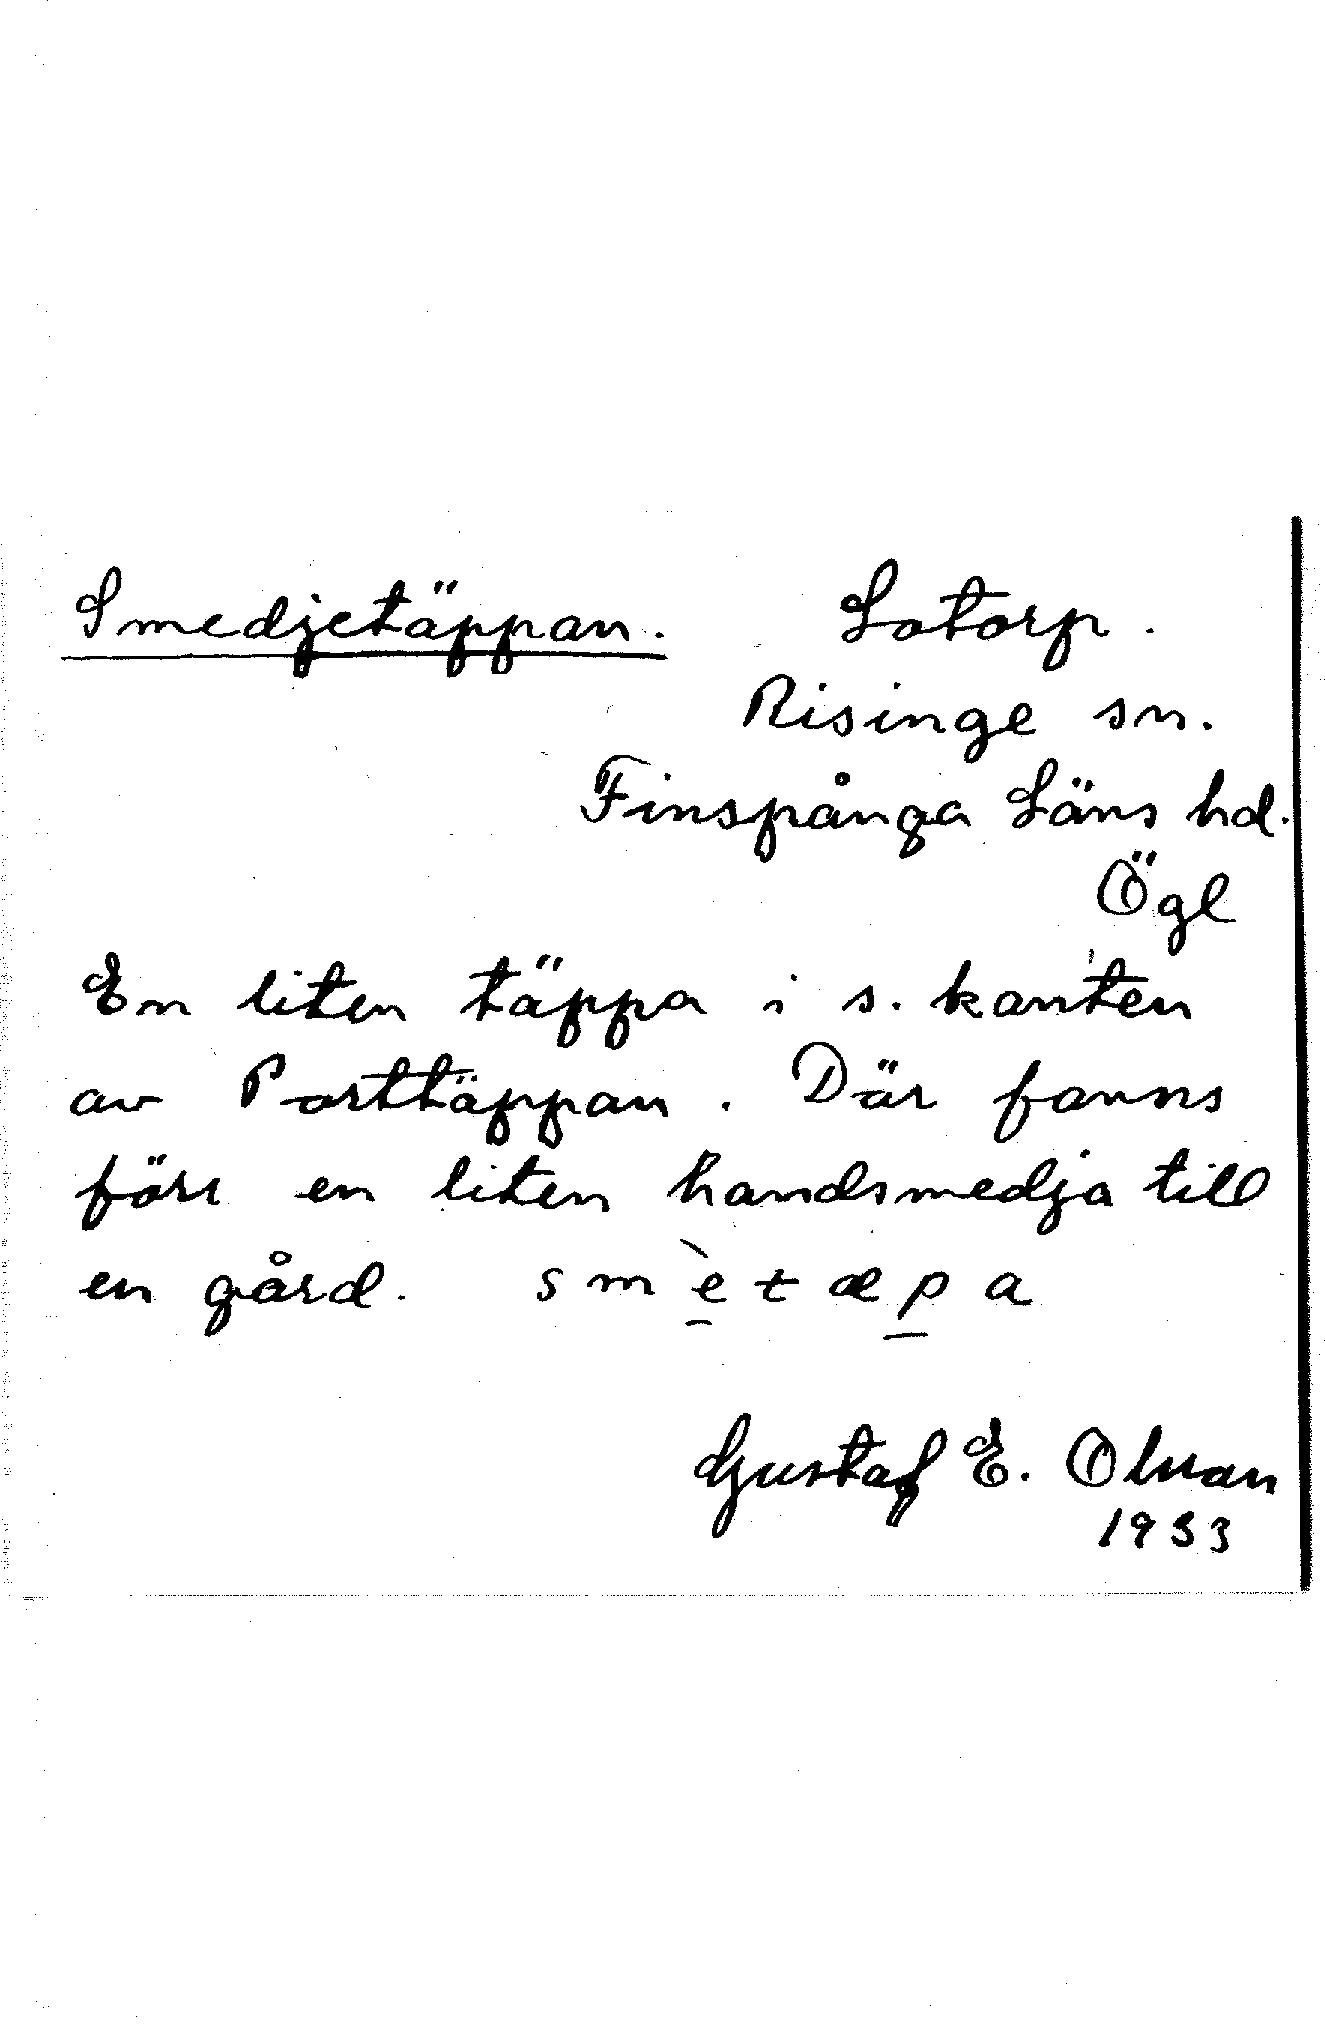 Smedjetäppan. Lotorp.
Risinge sn.
Finspånga Läns hd.
Ögl
En liten täppa i s. kanten
av Porttäppan. Där fanns
förr en liten handsmedja till
en gård. smètæpa
Gustaf E. Olsson
1933